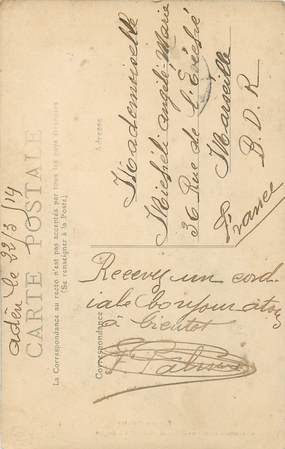 CARTE POSTALE
La Correspondance au recto n'est pas acceptée par tous les pays étrangers
(Se renseigner à la Poste)
Correspondance
Adresse
adèn le 22/3/14
Mademoiselle
Michéli Angèle Marie
36 Rue de l'Evéché
Marseille
B.D.R
France
Recevez un cord
iale bonjour
à bientot